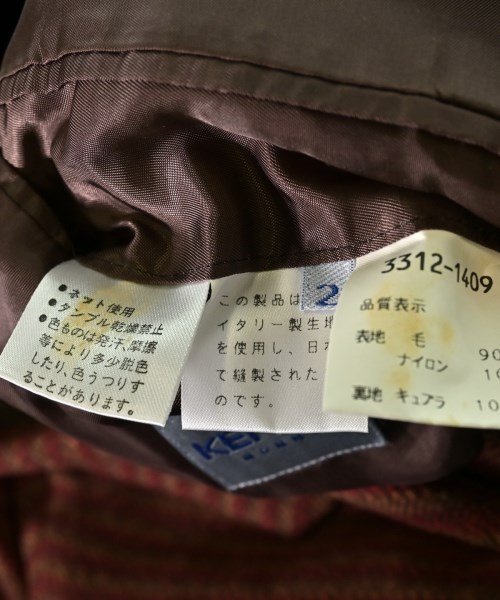 ●ネット使用
●タンブル乾燥禁止
●色ものは発汗、摩擦
等により多少脱色
したり、色うつりす
ることがあります。
2
この製品は
イタリー製生地
を使用し、日本
で縫製された
のです。
3312-1409
品質表示
表地 毛 90
ナイロン 10
裏地 キュプラ 10
KE